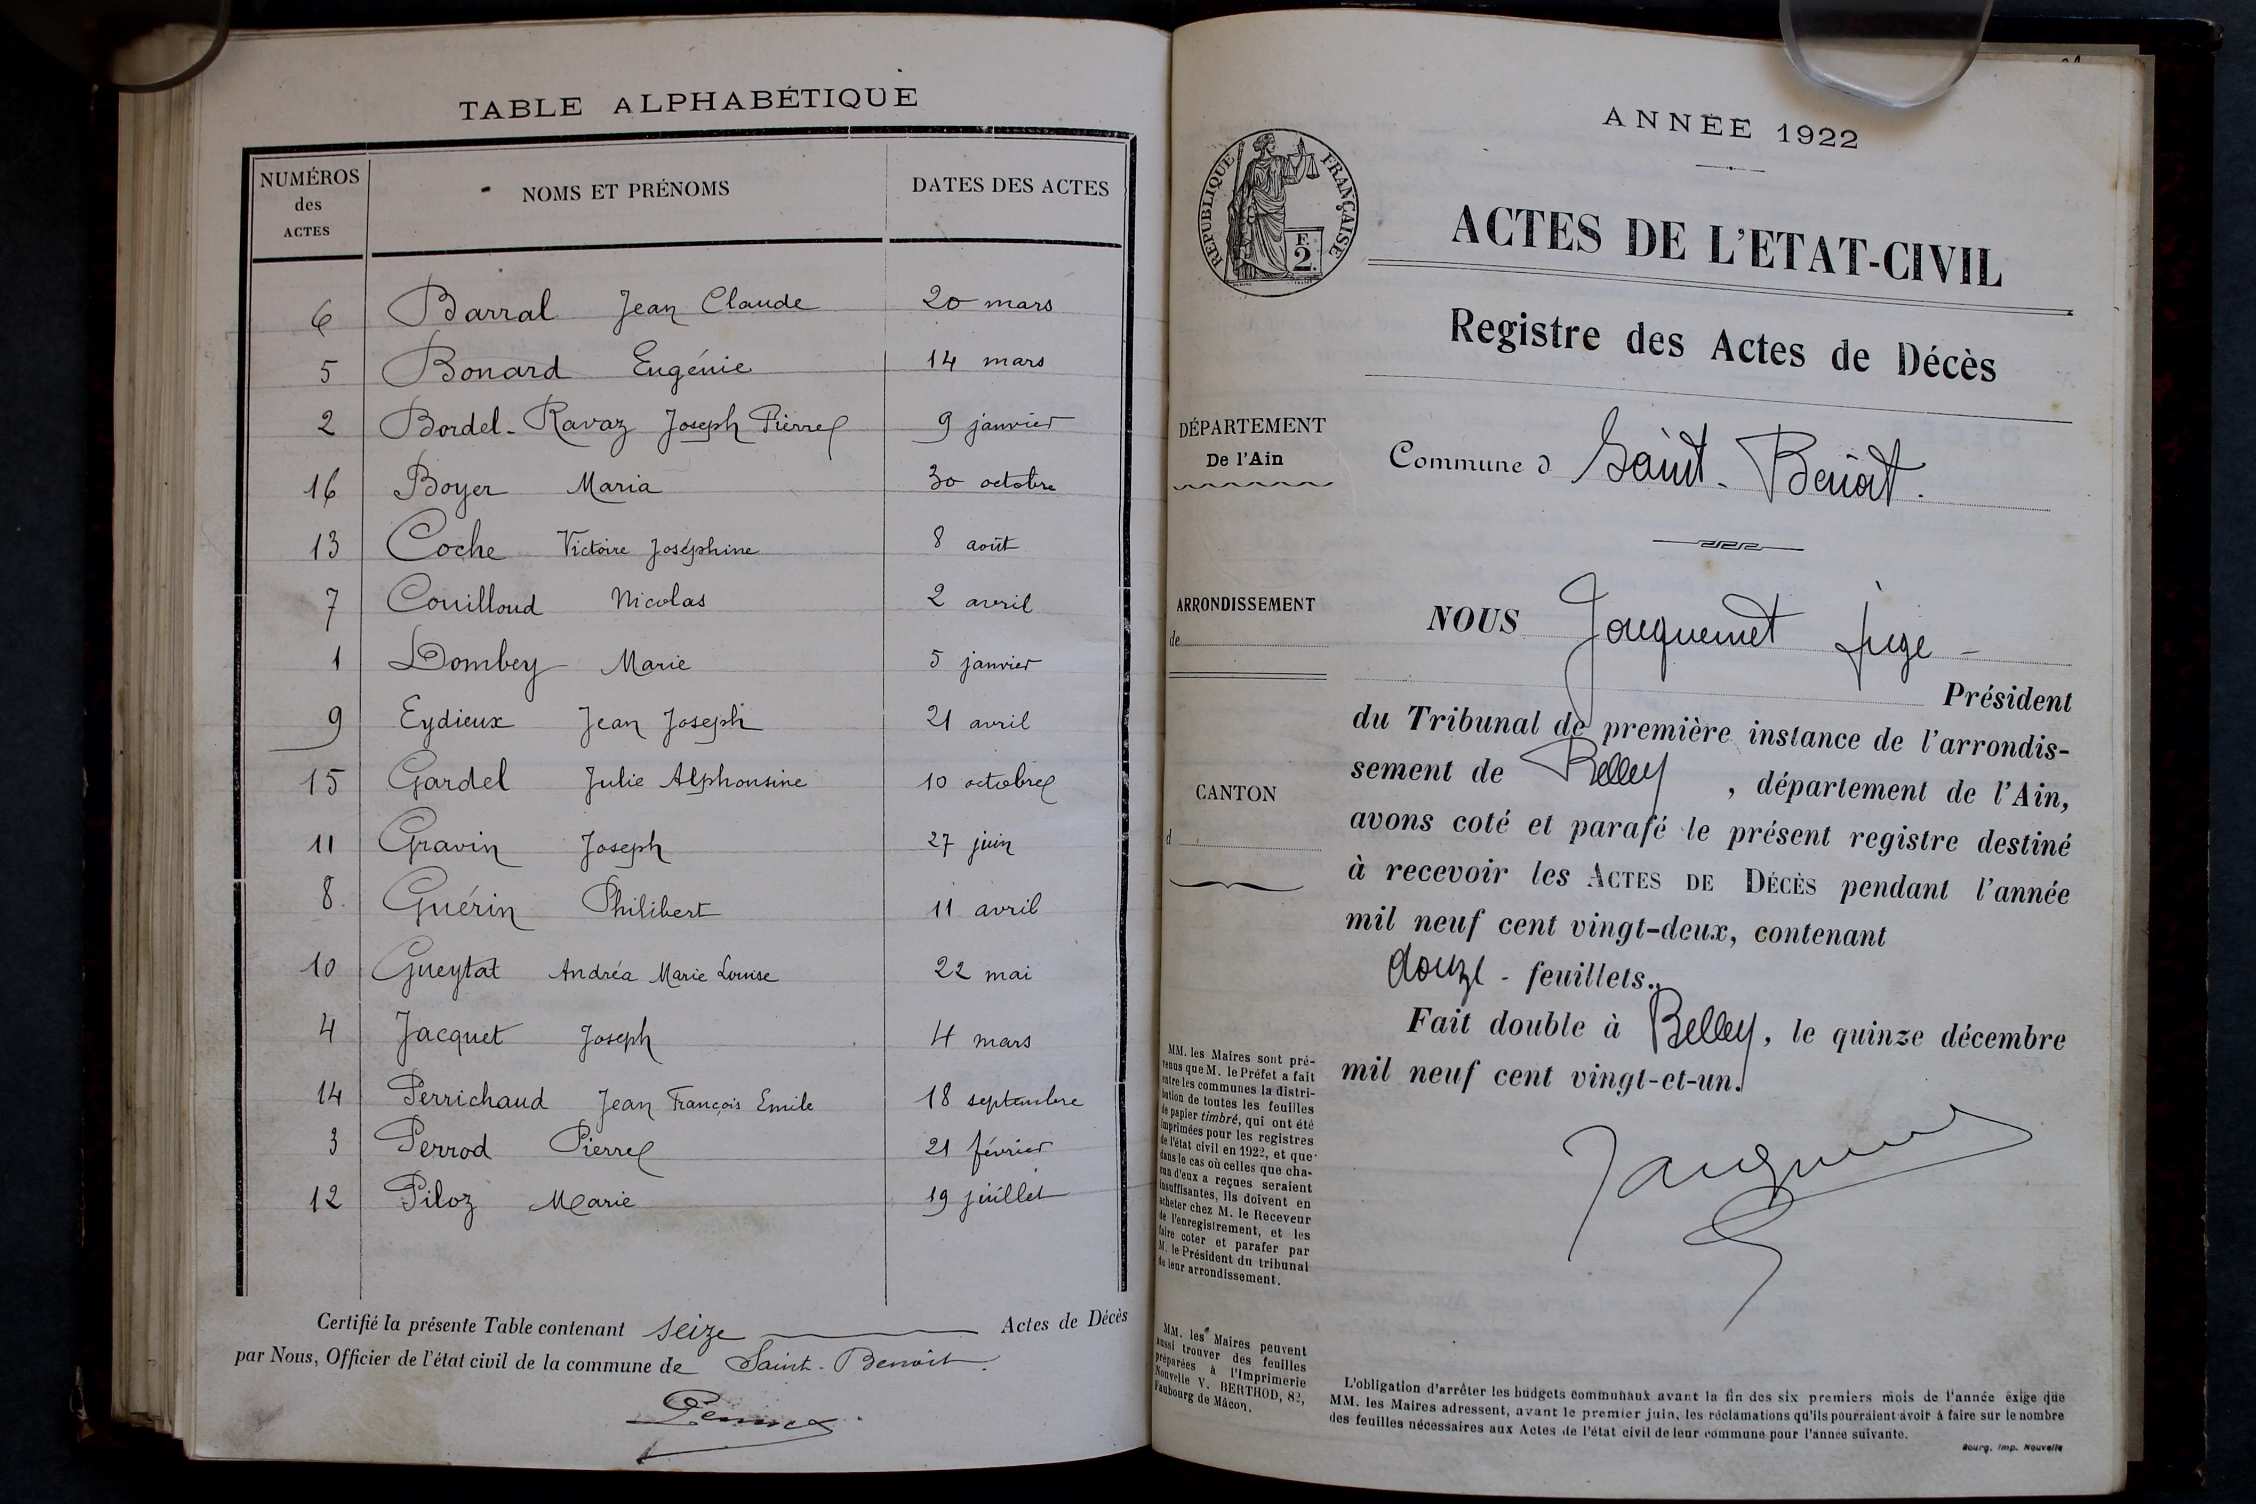 TABLE ALPHABÉTIQUE
NUMÉROS des ACTES NOMS ET PRÉNOMS DATES DES ACTES
6 Barral Jean Claude 20 mars
5 Bonard Eugénie 14 mars
2 Bordel-Ravaz Joseph Pierre 9 janvier
16 Boyer Maria 30 octobre
13 Coche Victoire Joséphine 8 août
7 Couilloud Nicolas 2 avril
1 Dombey Marie 5 janvier
9 Eydieux Jean Joseph 21 avril
15 Gardel Julie Alphonsine 10 octobre
11 Gravin Joseph 27 juin
8 Guérin Philibert 11 avril
10 Gueytat Andréa Marie Louise 22 mai
4 Jacquet Joseph 4 mars
14 Perrichaud Jean François Emile 18 septembre
3 Perrod Pierre 21 février
12 Piloz Marie 19 juillet
Certifié la présente Table contenant seize Actes de Décès
par Nous, Officier de l'état civil de la commune de Saint-Benoît.
ANNÉE 1922
RÉPUBLIQUE FRANÇAISE
F.
2
ACTES DE L'ETAT-CIVIL
Registre des Actes de Décès
DÉPARTEMENT
De l'Ain
Commune d Saint-Benoît.
ARRONDISSEMENT
de
NOUS Jacquemet juge
Président
du Tribunal de première instance de l'arrondis-
sement de Belley, département de l'Ain,
CANTON
d
avons coté et parafé le présent registre destiné
à recevoir les ACTES DE DÉCÈS pendant l'année
mil neuf cent vingt-deux, contenant
douze - feuillets.
Fait double à Belley, le quinze décembre
mil neuf cent vingt-et-un.
MM. les Maires sont pré-
venus que M. le Préfet a fait
entre les communes la distri-
bution de toutes les feuilles
de papier timbré, qui ont été
imprimées pour les registres
de l'état civil en 1922, et que
dans le cas où celles que cha-
cun d'eux a reçues seraient
insuffisantes, ils doivent en
acheter chez M. le Receveur
de l'enregistrement, et les
faire coter et parafer par
M. le Président du tribunal
de leur arrondissement.
MM. les Maires peuvent
aussi trouver des feuilles
préparées à l'Imprimerie
Nouvelle V. BERTHOD, 82,
Faubourg de Mâcon.
L'obligation d'arrêter les budgets communaux avant la fin des six premiers mois de l'année exige que
MM. les Maires adressent, avant le premier juin, les réclamations qu'ils pourraient avoir à faire sur le nombre
des feuilles nécessaires aux Actes de l'état civil de leur commune pour l'année suivante.
Bourg, Imp. Nouvelle